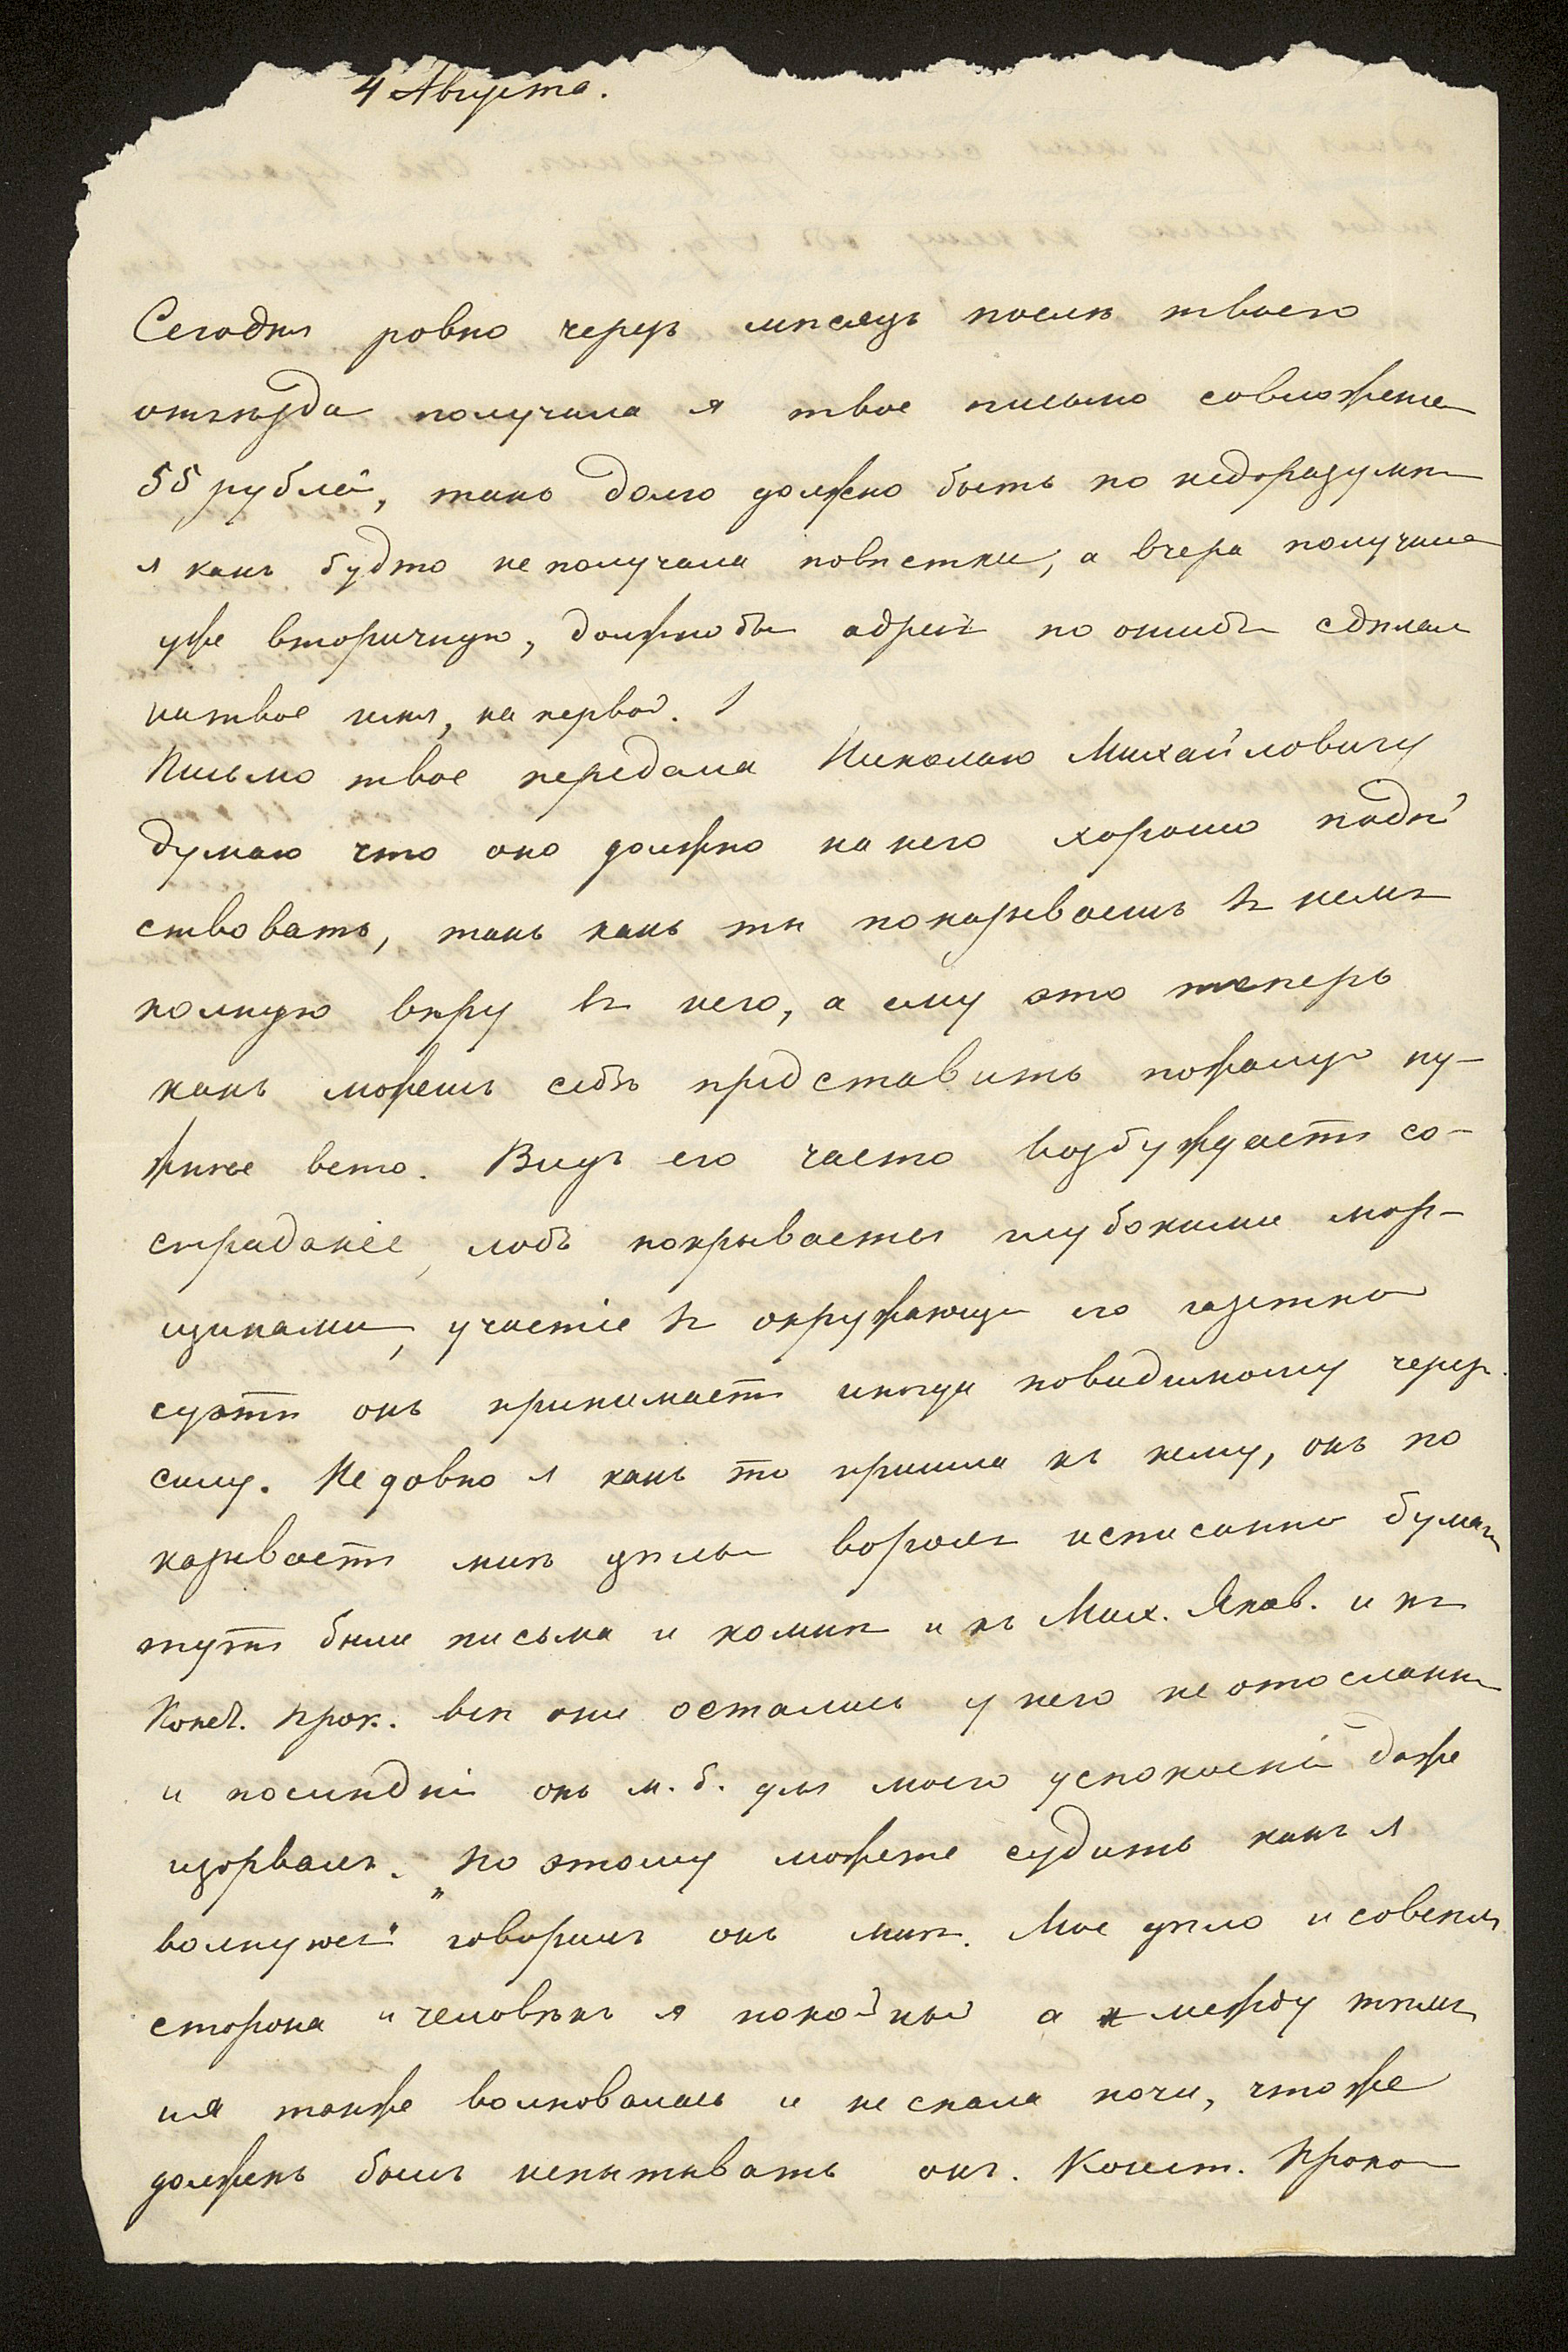 4 Августа.
Сегодня ровно черезъ мѣсяцъ послѣ твоего
отъѣзда получила я твое письмо со вложеніе
55 рублей, такъ долго должно быть по недоразумѣн
я какъ будто не получала повѣстки, а вчера получила
уже вторичную, должно бы адресъ по ошибк сдѣлал
на твое имя, на первой.
Письмо твое передала Николаю Михайловичу
думаю что оно должно на него хорошо подѣй
ствовать, такъ какъ ты показываешь въ немъ
полную вѣру въ него, а ему это теперь
какъ можешь себѣ представить пожалуй ну-
жнѣе всего. Видъ его часто возбуждаетъ со-
страданіе, лобъ покрывается глубокими мор-
щинами, участіе въ окружающе его газетной
суэтѣ онъ принимаетъ иногда повидимому черезъ
силу. Недавно я какъ то пришла къ нему, онъ по
казываетъ мнѣ цѣлы ворохъ исписанно бумаги
тутъ были письма и ко мнѣ и къ Мих. Яковл. и къ
Конст. Прок. всѣ они остались у него не отосланны
и послѣдній онъ м. б. для моего успокоенія даже
изорвалъ. „По этому можете судить какъ я
волнуюсь" говорилъ онъ мнѣ. Мое дѣло и совсѣмъ
сторона и человѣкъ я покойный а между тѣмъ
и я также волновалась и не спала ночи, что же
долженъ былъ испытывать онъ. Конст. Проко